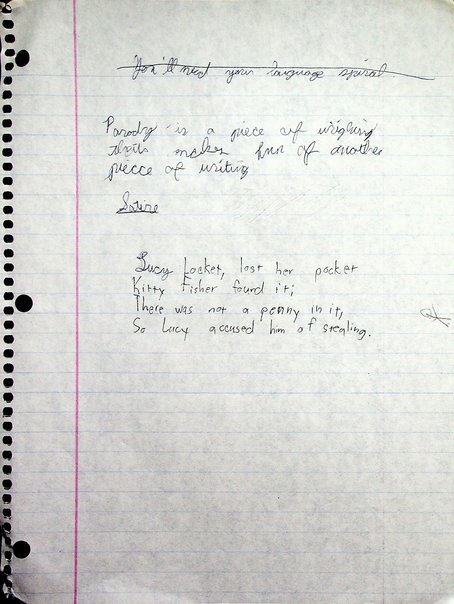 You'll need your language spiral.
Parody is a piece of wrighing
that makes fun of another
piecce of writing
Satire
Lucy Locket, lost her pocket
Kitty Fisher found it;
There was not a penny in it,
So Lucy accused him of stealing.